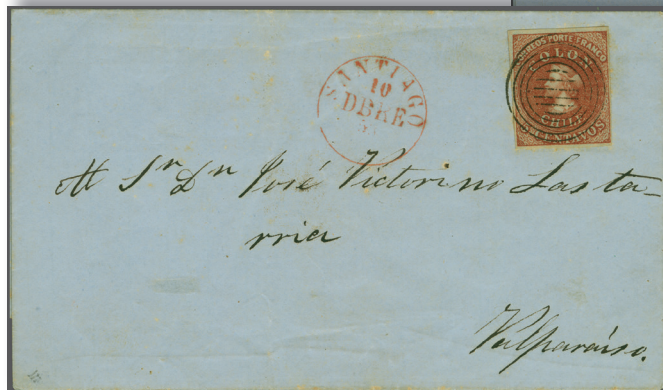 CORREOS PORTE FRANCO
COLON
CHILE
CENTAVOS
SANTIAGO
10
DBRE
Al Sr Dn José Victorino Lasta-
rria
Valparaíso.